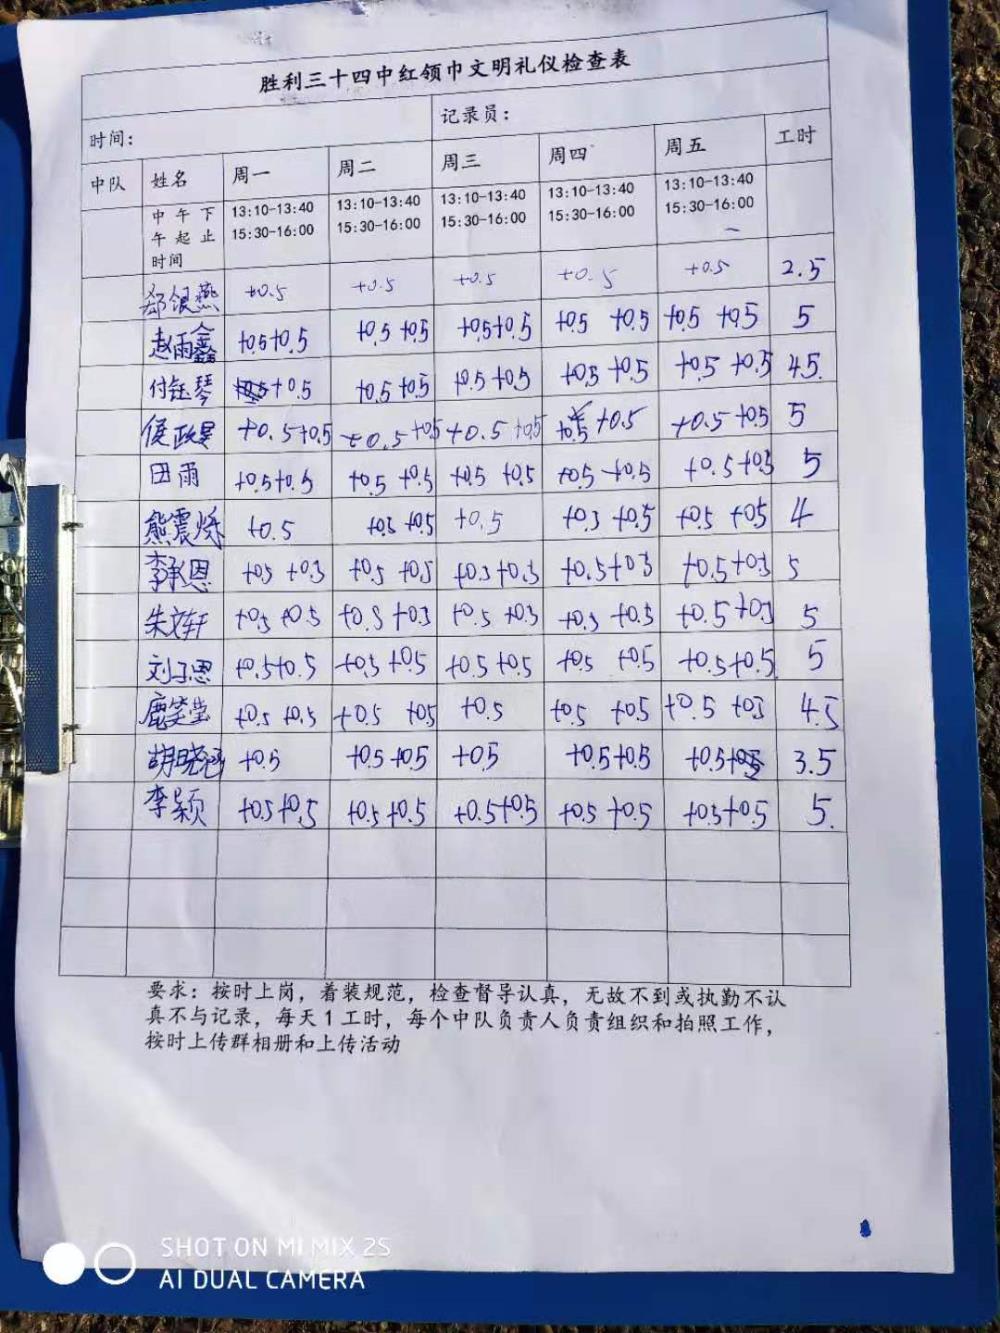 胜利三十四中红领巾文明礼仪检查表
时间: 记录员:
中队 姓名 周一 周二 周三 周四 周五 工时
中午下 13:10-13:40 13:10-13:40 13:10-13:40 13:10-13:40 13:10-13:40
午起止 15:30-16:00 15:30-16:00 15:30-16:00 15:30-16:00 15:30-16:00
时间
银燕 +0.5 +0.5 +0.5 +0.5 +0.5 2.5
赵雨鑫 +0.5+0.5 +0.5 +0.5 +0.5+0.5 +0.5 +0.5 +0.5 +0.5 5
付钰琴 +0.5 +0.5 +0.5 +0.5 +0.5 +0.5 +0.5 +0.5 +0.5 4.5
+0.5+0.5 +0.5+0.5 +0.5+0.5 +0.5 +0.5 +0.5 +0.5 5
田雨 +0.5+0.5 +0.5 +0.5 +0.5 +0.5 +0.5 +0.5 +0.5+0.5 5
熊震烁 +0.5 +0.5 +0.5 +0.5 +0.5 +0.5 +0.5 +0.5 4
李承恩 +0.5 +0.5 +0.5 +0.5 +0.5+0.5 +0.5+0.5 +0.5+0.5 5
朱文轩 +0.5 +0.5 +0.5 +0.5 +0.5 +0.5 +0.5 +0.5 +0.5+0.5 5
刘子恩 +0.5+0.5 +0.5 +0.5 +0.5 +0.5 +0.5 +0.5 +0.5+0.5 5
鹿笑莹 +0.5 +0.5 +0.5 +0.5 +0.5 +0.5 +0.5 +0.5 +0.5 4.5
胡晓涵 +0.5 +0.5+0.5 +0.5 +0.5+0.5 +0.5+0.5 3.5
李颖 +0.5+0.5 +0.5+0.5 +0.5+0.5 +0.5 +0.5 +0.5+0.5 5.
要求:按时上岗,着装规范,检查督导认真,无故不到或执勤不认
真不与记录,每天1工时,每个中队负责人负责组织和拍照工作,
按时上传群相册和上传活动
SHOT ON MI MIX 2S
AI DUAL CAMERA